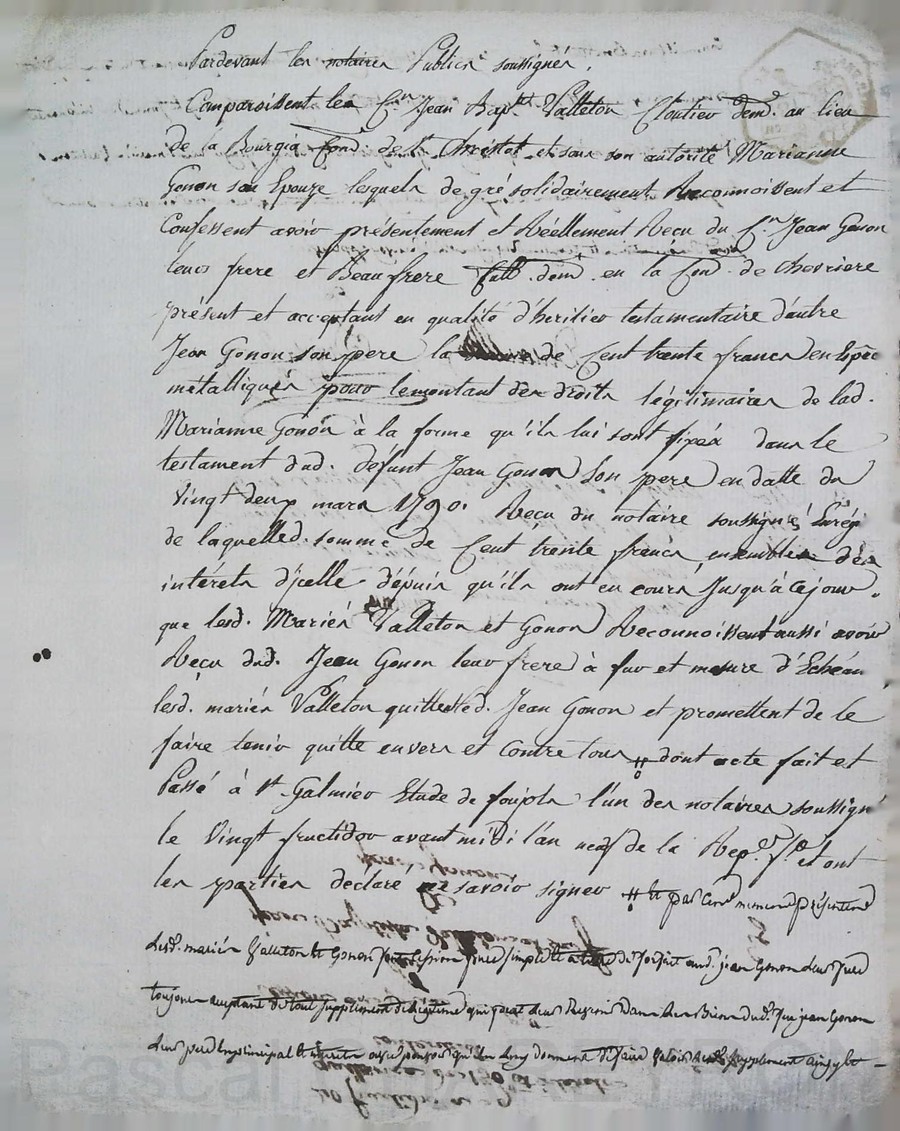 Pardevant les notaires Publics soussignés.
Comparoissent les C.en Jean Bap.te Valleton Cloutier dem.t au lieu
de la Bourgia Con.e de St. et sous son autorité Marianne
Gonon son Epouze lesquels de gré solidairement Reconnoissent et
Confessent avoir présentement et Réellement Recu du C.en Jean Gonon
leur frere et Beaufrere Cult. dem.t en la Con.e de Chevriere
présent et acceptant en qualité d'heritier testamentaire d'autre
Jean Gonon son pere la de Cent trente francs en Espèc
métalliques pour le montant des droits légitimaires de lad.
Marianne Gonon à la forme qu'ils lui sont fixés dans le
testament dud. défunt Jean Gonon son pere en datte du
Vingt deux mars 1790. Reçu du notaire soussigné Enrég.
de laquelle d. somme de Cent trente francs, ensemble des
intérets d'jcelle dépuis qu'ils ont eu cours Jusqu'à cejour.
que lesd. Mariés Valleton et Gonon Reconnoissent aussi avoir
Reçu dud. Jean Gonon leur frere à fur et mesure d'Echéan
lesd. mariés Valleton quittent led. Jean Gonon et promettent de le
faire tenir quitte envers et Contre tous dont acte fait et
Passé à St. Galmier Etude de foujols l'un des notaires soussigné
le Vingt fructidor avant midi l'an neuf de la Rep.e f.se et ont
les parties déclaré ne savoir signer et par ces mêmes présentes
Lesd. mariés Valleton et Gonon font cession pure simple et à titre de forfait aud. jean Gonon leur frere
toujours acceptant de tout supplement de légitime qui peut leur Revenir Dans les Biens dud. feu jean Gonon
leur pere En principal et interets